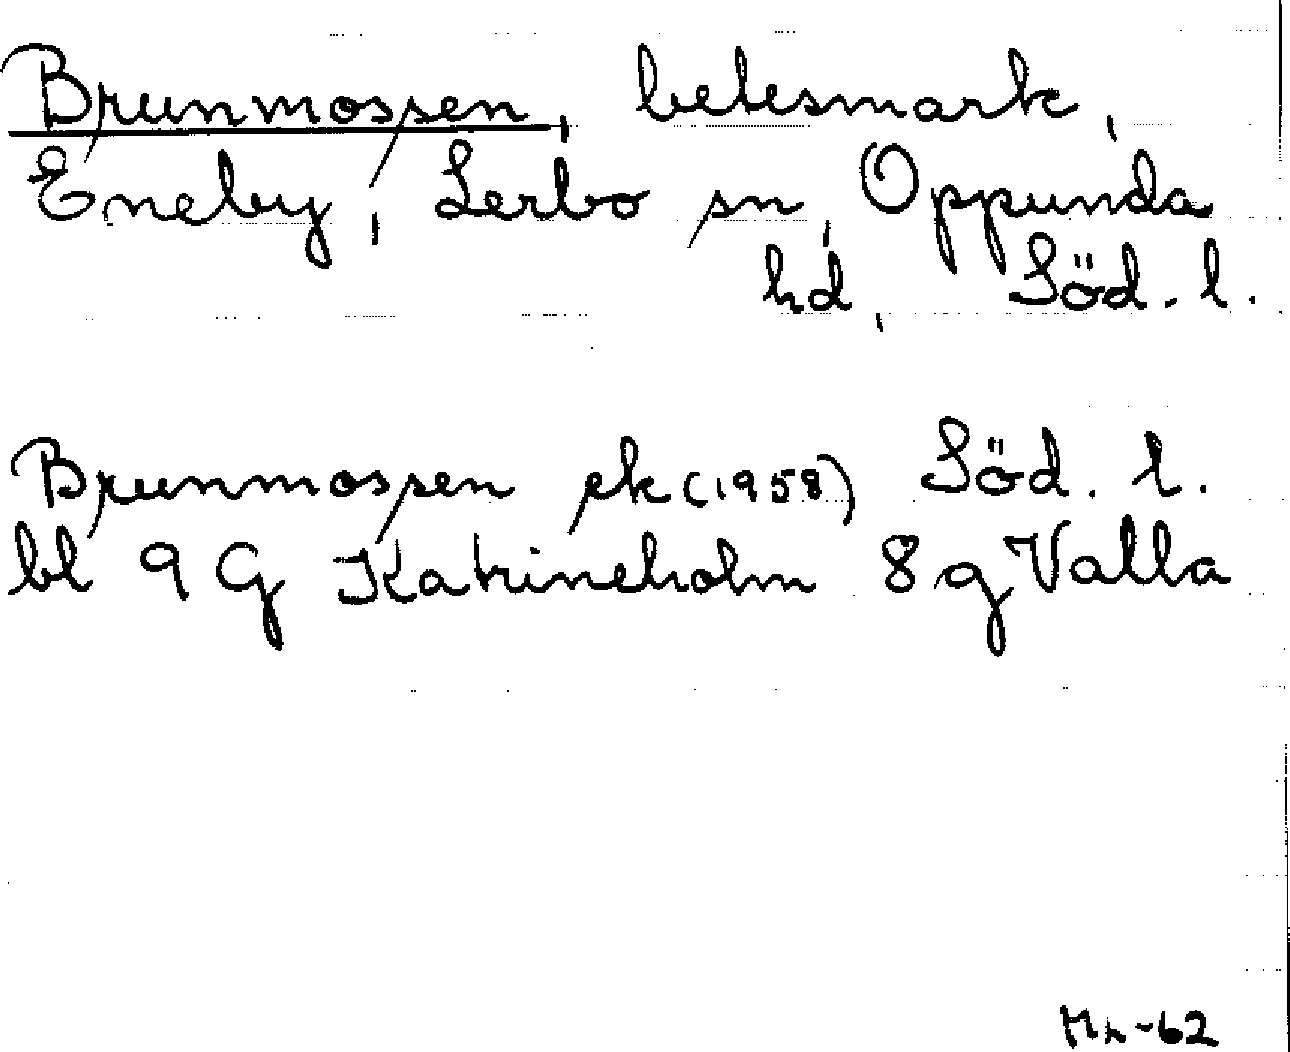 Brunmossen, betesmark,
Eneby, Lerbo sn, Oppunda
hd, Söd. l.
Brunmossen ek (1958) Söd. l.
bl 9 G Katrineholm 8 g Valla
-62